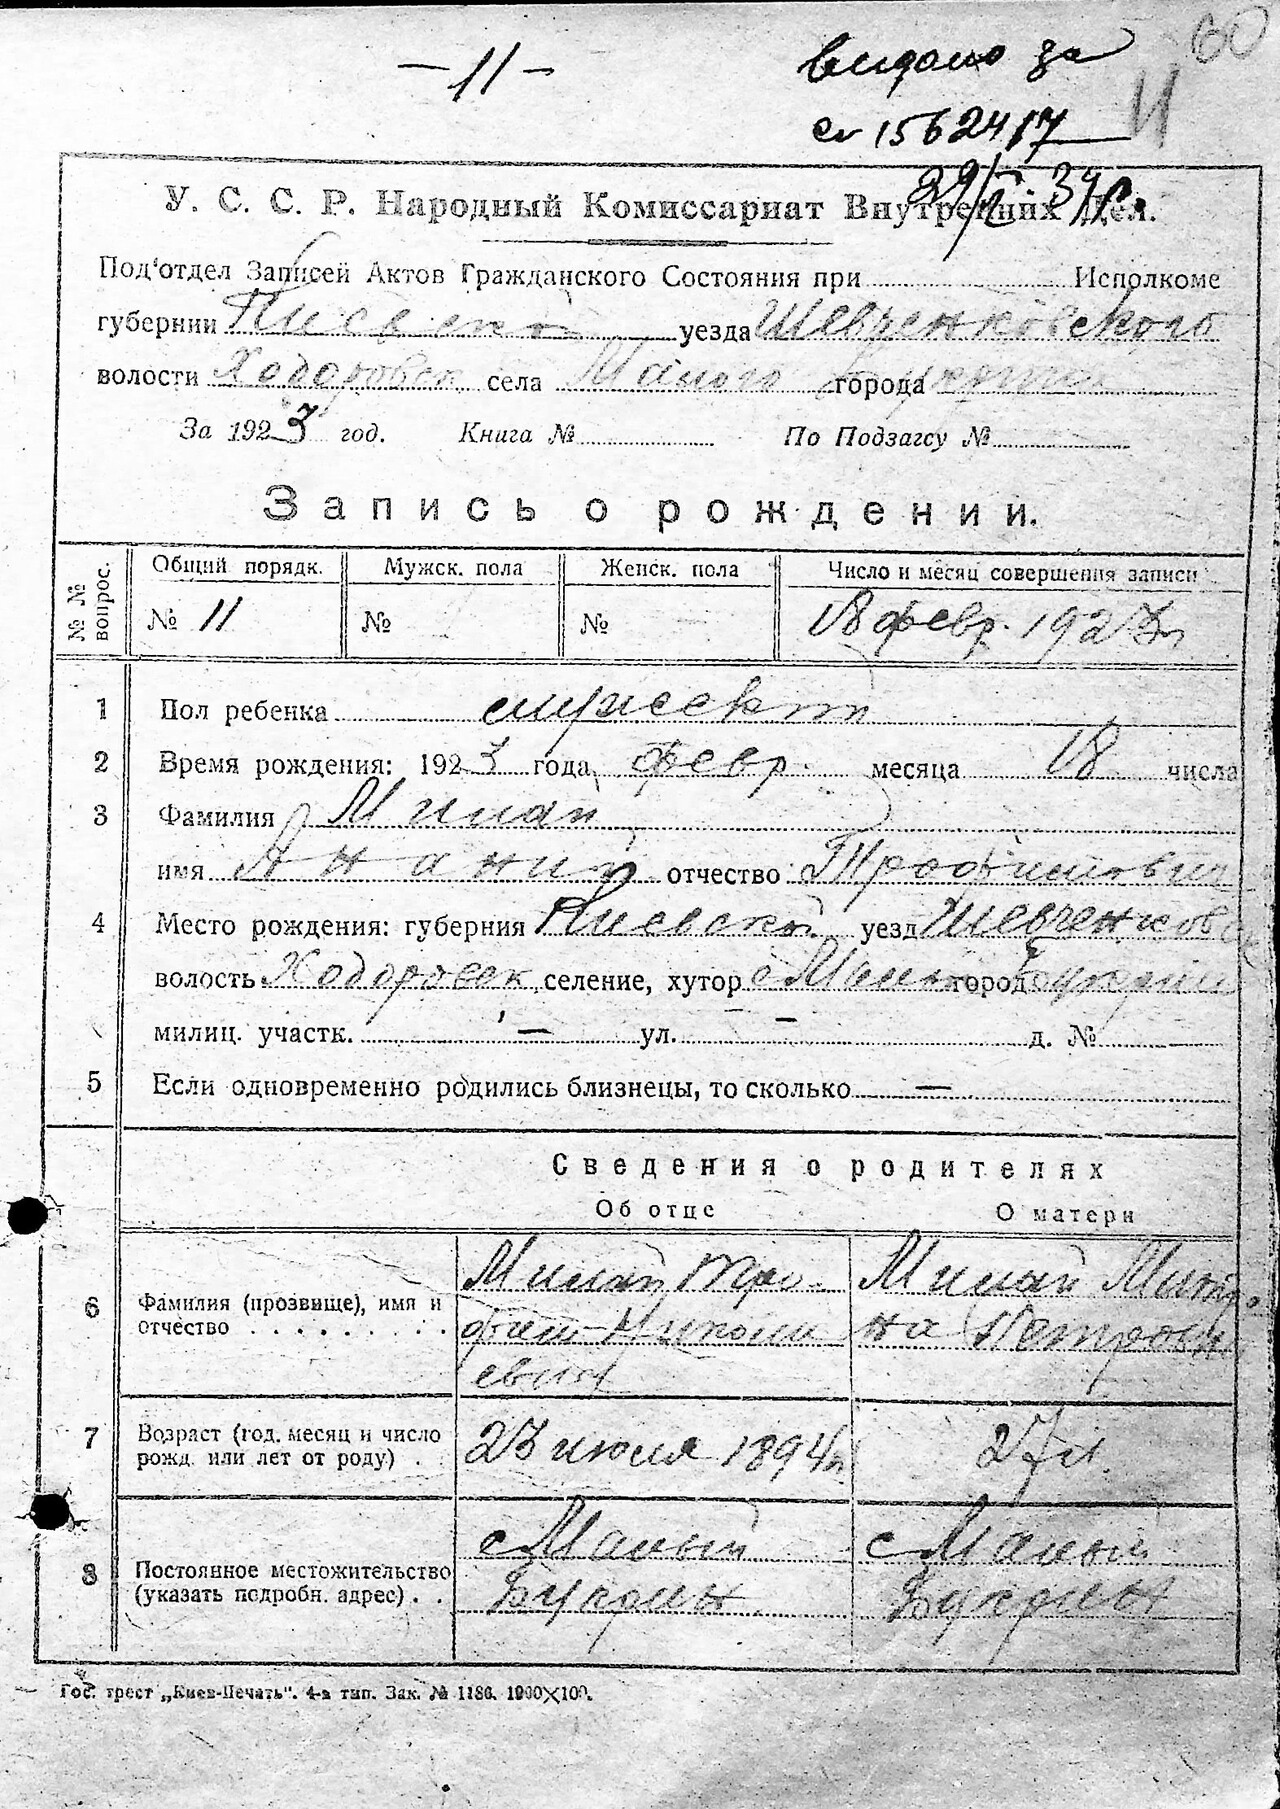 60
- 11 -
видано за
11
св 1562417
29/I-39р.
У. С. С. Р. Народный Комиссариат Внутренних Дел.
Под'отдел Записей Актов Гражданского Состояния при Исполкоме
губернии Киевской уезда Шевченковского
волости Ходоровск села Малого города
За 1923 год. Книга № По Подзагсу №
Запись о рождении.
№№ вопрос. Общий порядк. Мужск. пола Женск. пола Число и месяц совершения записи
№ 11 № № 18 февр. 1923 г
1 Пол ребенка мужской
2 Время рождения: 1923 года февр. месяца 18 числа
3 Фамилия Милай
имя Ананий отчество Трофимович
4 Место рождения: губерния Киевской уезд Шевченковск
волость Ходоровск селение, хутор с Малый город Букрин
милиц. участк. — ул. — д. № —
5 Если одновременно родились близнецы, то сколько —
Сведения о родителях
Об отце О матери
6 Фамилия (прозвище), имя и отчество
Милай Тро-
фим Николаевич
Милай Матро-
на Петровн
7 Возраст (год, месяц и число рожд. или лет от роду)
23 июля 1894 г.
27 л.
8 Постоянное местожительство (указать подробн. адрес)
с Малый
Букрин
с Малый
Букрин
Гос. трест „Киев-Печать". 4-я тип. Зак. № 1186. 1900×100.